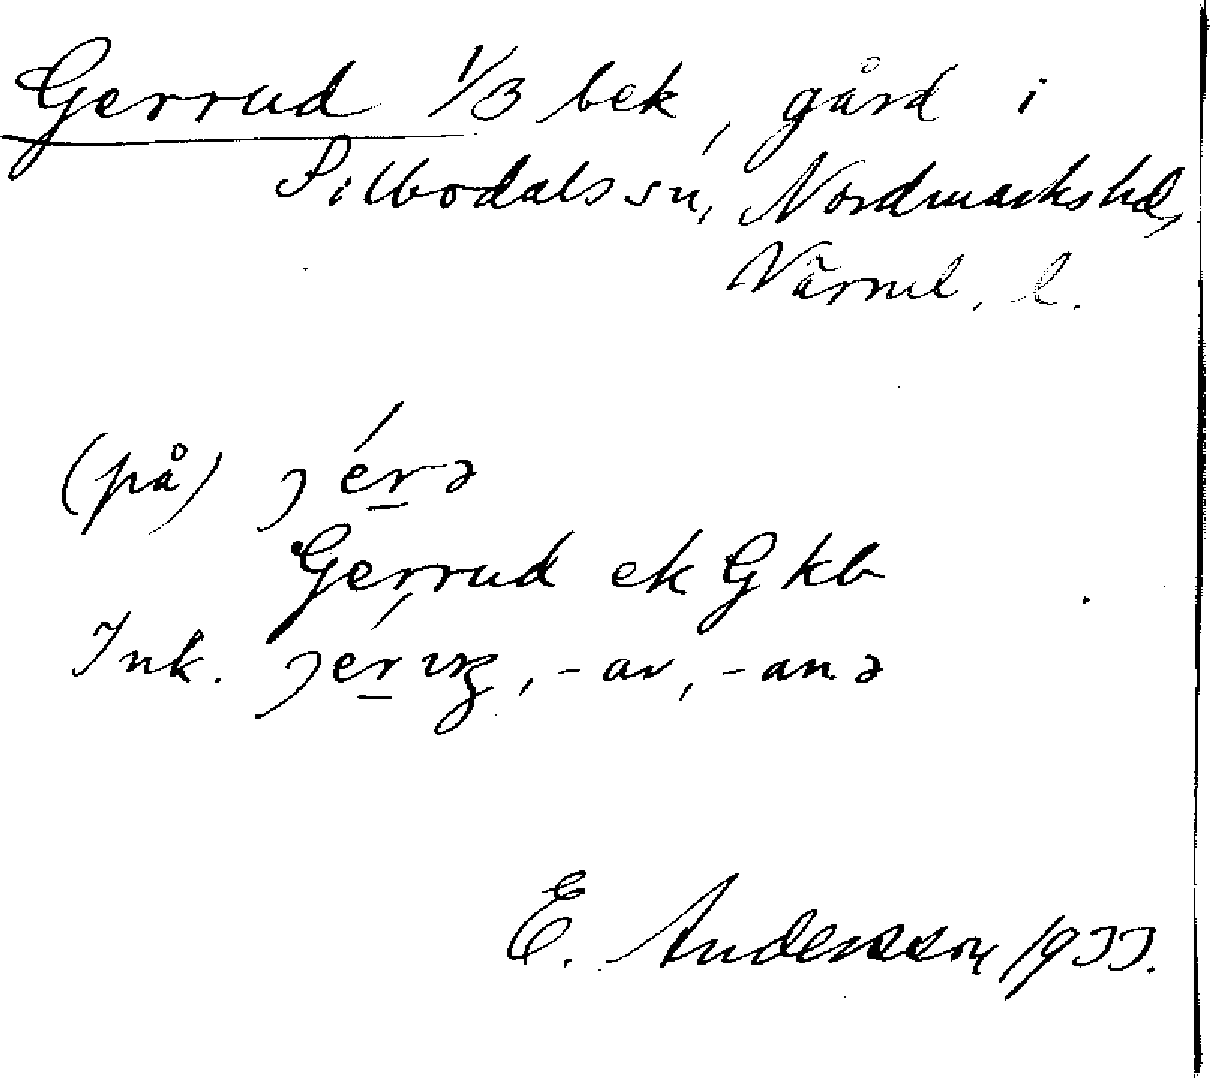 Gerrud 1/3 bek, gård i
Silbodals sn, Nordmarks hd,
Värml. l.
(på) jérə
Gerrud ek G kb
Ink. , -ar, -anə
E. Andersson 1933.